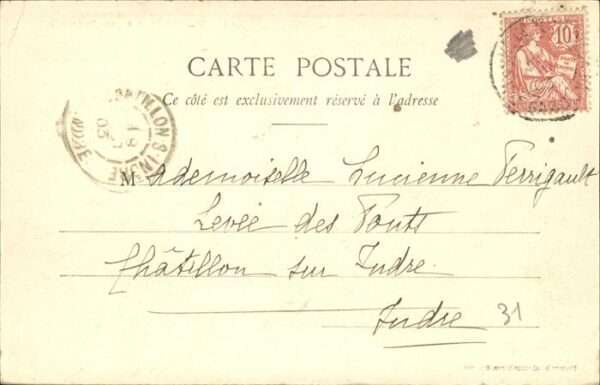 CARTE POSTALE
Ce côté est exclusivement réservé à l'adresse
10
CHATILLON S INDRE
INDRE
19
03
Mademoiselle Lucienne Perrigault
Levée des Ponts
Châtillon sur Indre
Indre
31